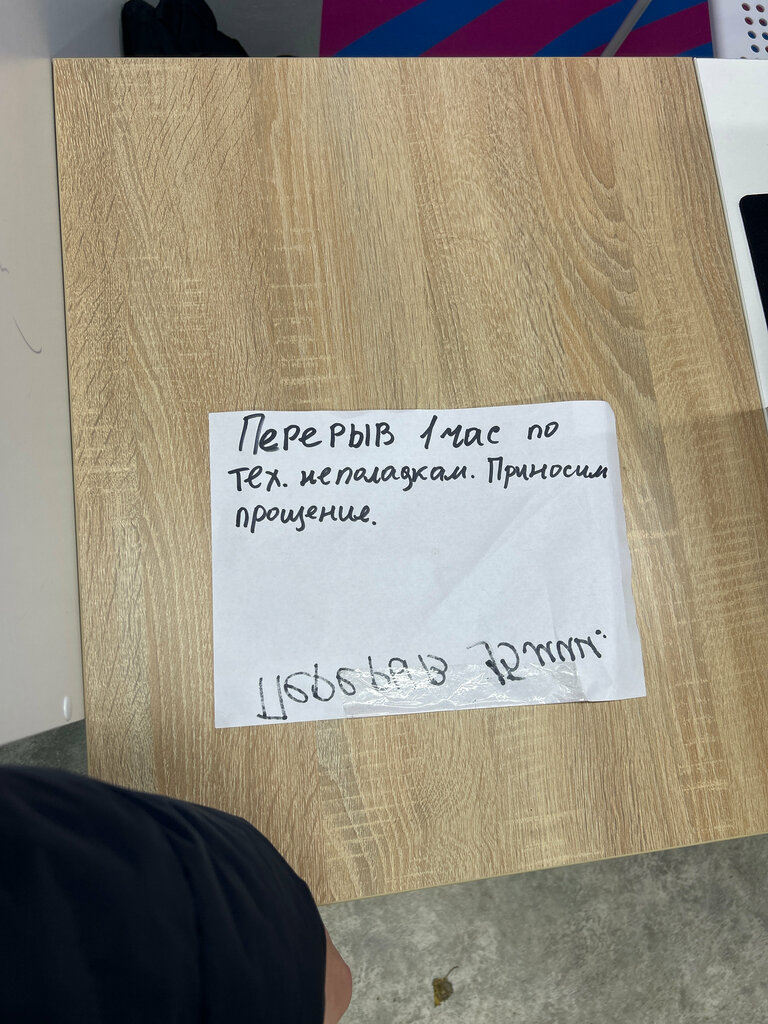 Перерыв 1 час по
тех. неполадкам. Приносим
прощение.
Перерыв 15 мин.